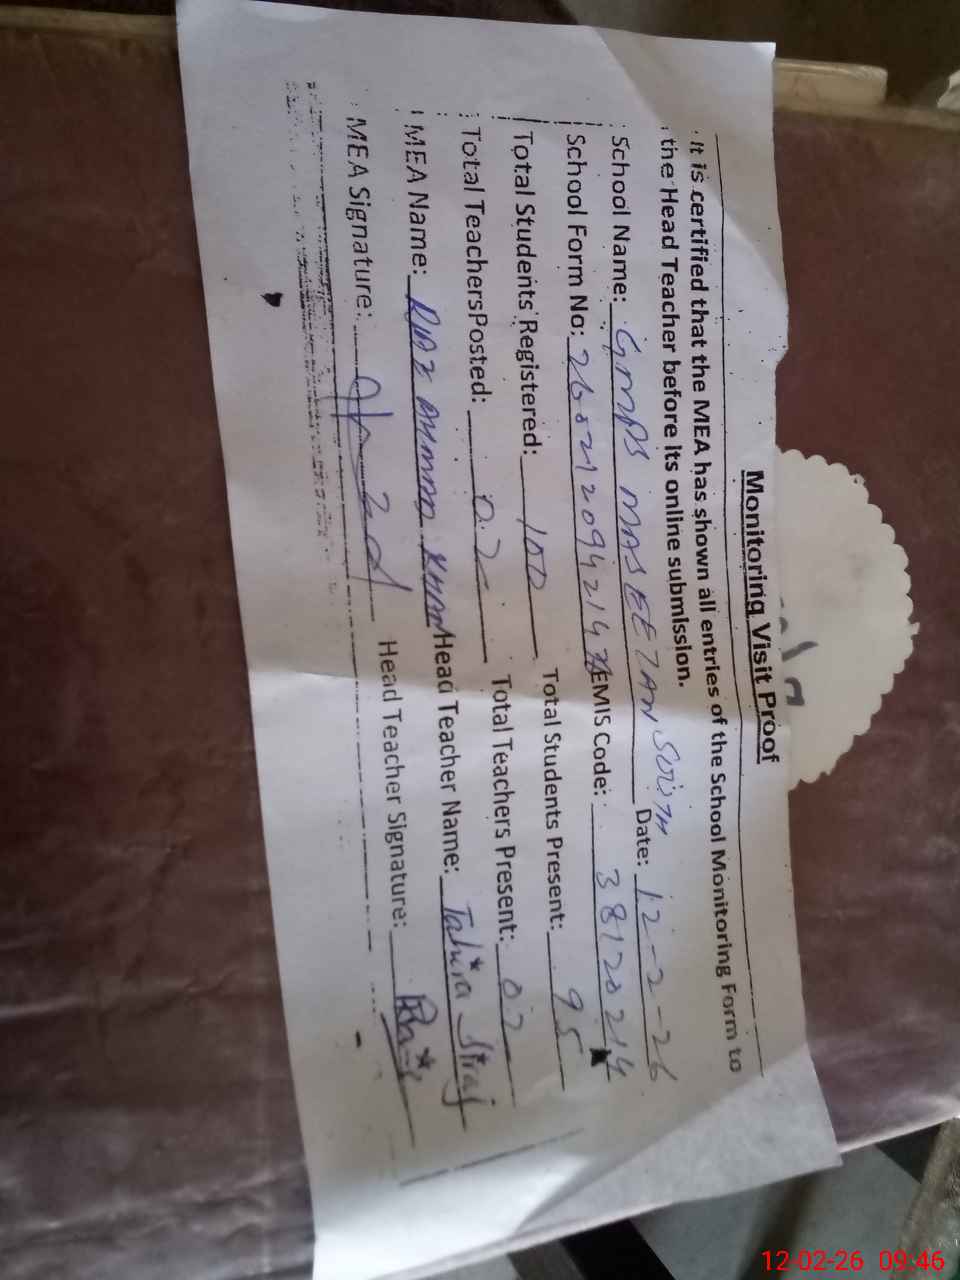 Monitoring Visit Proof
It is certified that the MEA has shown all entries of the School Monitoring Form to
the Head Teacher before its online submission.
School Name: GMPS MASEETAN SOUTH Date: 12-2-26
School Form No: EMIS Code: 38120214
Total Students Registered: 100 Total Students Present: 95
Total TeachersPosted: 02 Total Teachers Present: 02
MEA Name: RIAZ AHMAD KHAN Head Teacher Name: Tahira Siraj
MEA Signature: Head Teacher Signature:
12-02-26 09:46